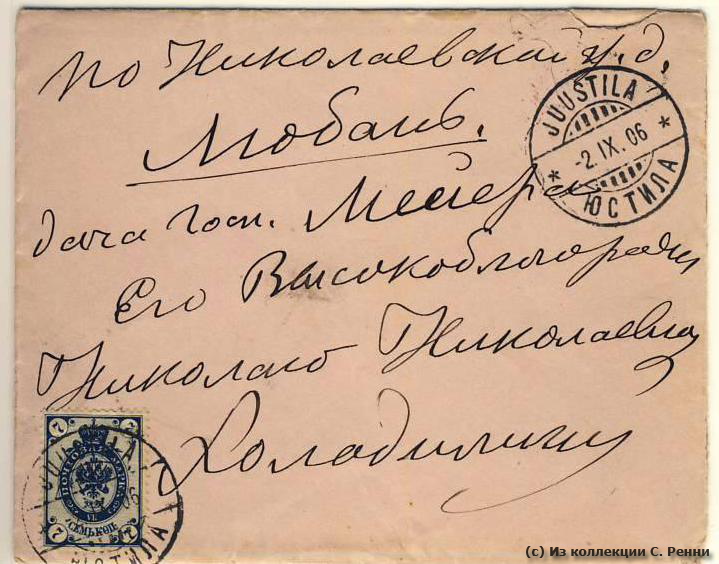 по Николаевской ж. д.
Любань.
дача госп. Мейера
Его Высокоблагородию
Николаю Николаевичу
Холодилину
JUUSTILA
-2.IX.06
ЮСТИЛА
7 7
ПОЧТОВАЯ МАРКА
СЕМЬ КОП.
7 7
06
ЮСТИЛА
(c) Из коллекции С. Ренни